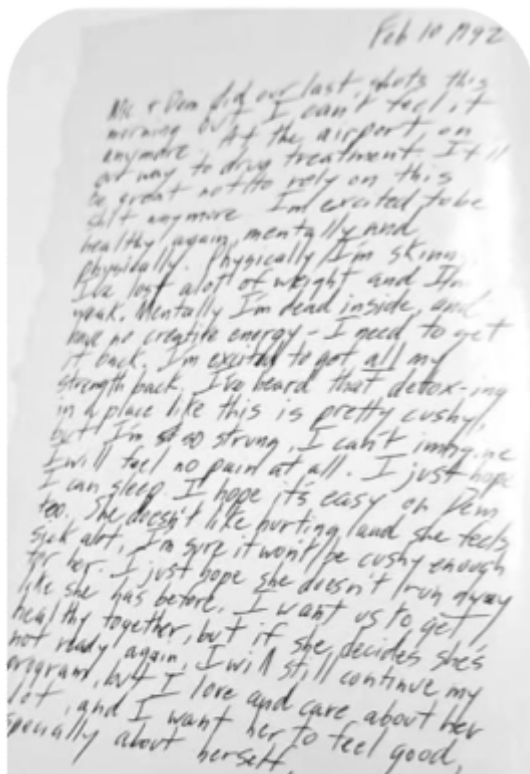 Feb 10 1992
Me + Dem did our last shots this
morning but I can't feel it
anymore. At the airport, on
our way to drug treatment. It'll
be great not to rely on this
shit anymore. I'm excited to be
healthy again, mentally and
physically. Physically I'm skinny.
I've lost alot of weight and I'm
weak. Mentally I'm dead inside, and
have no creative energy - I need to get
it back. I'm excited to get all my
strength back. I've heard that detox-ing
in a place like this is pretty cushy,
but I'm so so strung, I can't imagine
I will feel no pain at all. I just hope
I can sleep. I hope it's easy on Dem
too. She doesn't like hurting and she feels
sick alot, I'm sure it won't be cushy enough
for her. I just hope she doesn't run away
like she has before. I want us to get
healthy together, but if she decides she's
not ready again, I will still continue my
program, but I love and care about her
lot, and I want her to feel good,
specially about herself.